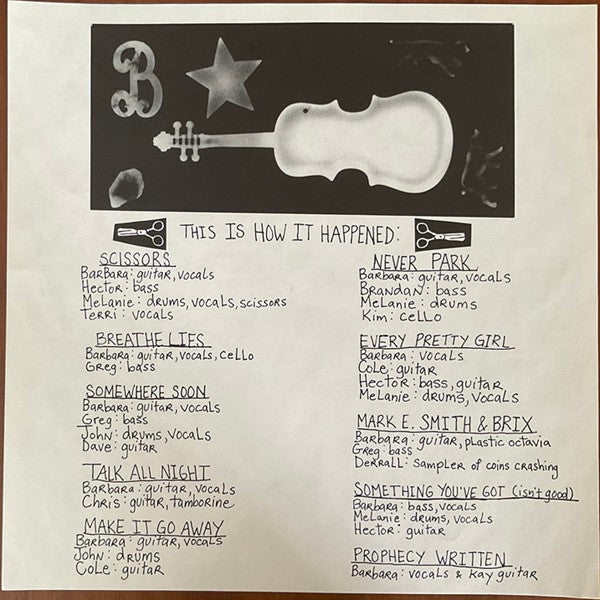 B
THIS IS HOW IT HAPPENED:
SCISSORS
BarBara: guitar, vocals
Hector: bass
Melanie: drums, vocals, scissors
Terri: vocals
BREATHE LIES
Barbara: guitar, vocals, cello
Greg: bass
SOMEWHERE SOON
Barbara: guitar, vocals
Greg: bass
John: drums, vocals
Dave: guitar
TALK ALL NIGHT
Barbara: guitar, vocals
Chris: guitar, tamborine
MAKE IT GO AWAY
Barbara: guitar, vocals
John: drums
Cole: guitar
NEVER PARK
Barbara: guitar, vocals
Brandan: bass
Melanie: drums
Kim: cello
EVERY PRETTY GIRL
Barbara: vocals
Cole: guitar
Hector: bass, guitar
Melanie: drums, vocals
MARK E. SMITH & BRIX
Barbara: guitar, plastic octavia
Greg: bass
Derrall: sampler of coins crashing
SOMETHING YOU'VE GOT (isn't good)
Barbara: bass, vocals
Melanie: drums, vocals
Hector: guitar
PROPHECY WRITTEN
Barbara: vocals & kay guitar